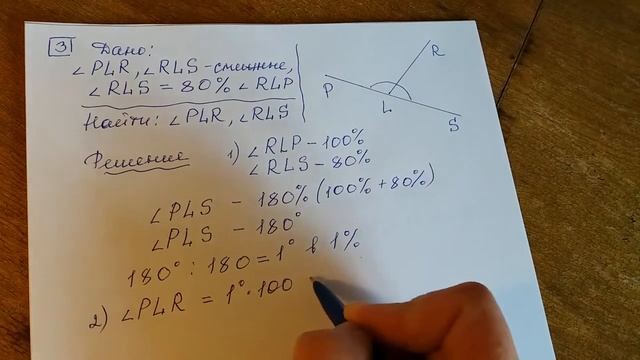 3 Дано:
∠PLR, ∠RLS - смежные,
∠RLS = 80% ∠RLP
Найти: ∠PLR, ∠RLS
Решение 1) ∠RLP - 100%
∠RLS - 80%
∠PLS - 180% (100% + 80%)
∠PLS - 180°
180° : 180 = 1° в 1%
2) ∠PLR = 1° · 100
R
P
L
S